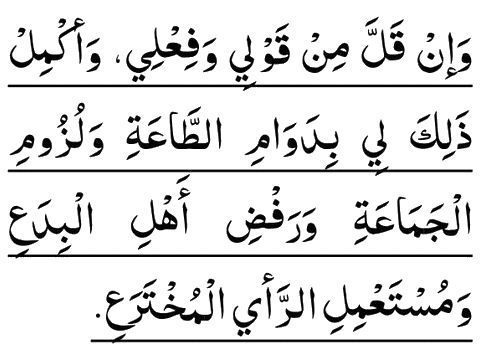 وَإِنْ قَلَّ مِنْ قَوْلِي وَفِعْلِي، وَأَكْمِلْ
ذَلِكَ لِي بِدَوَامِ الطَّاعَةِ وَلُزُومِ
الْجَمَاعَةِ وَرَفْضِ أَهْلِ الْبِدَعِ
وَمُسْتَعْمِلِ الرَّأيِ الْمُخْتَرَعِ.